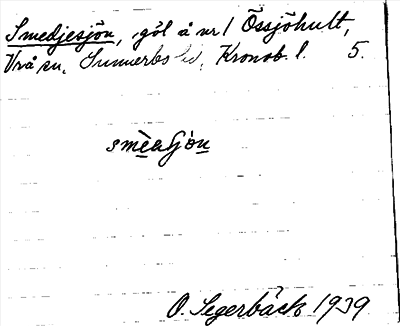 Smedjesjön, göl å nr 1 Össjöhult,
Vrå sn, Sunnerbo hd, Kronob. l. 5.
O. Segerbäck 1939